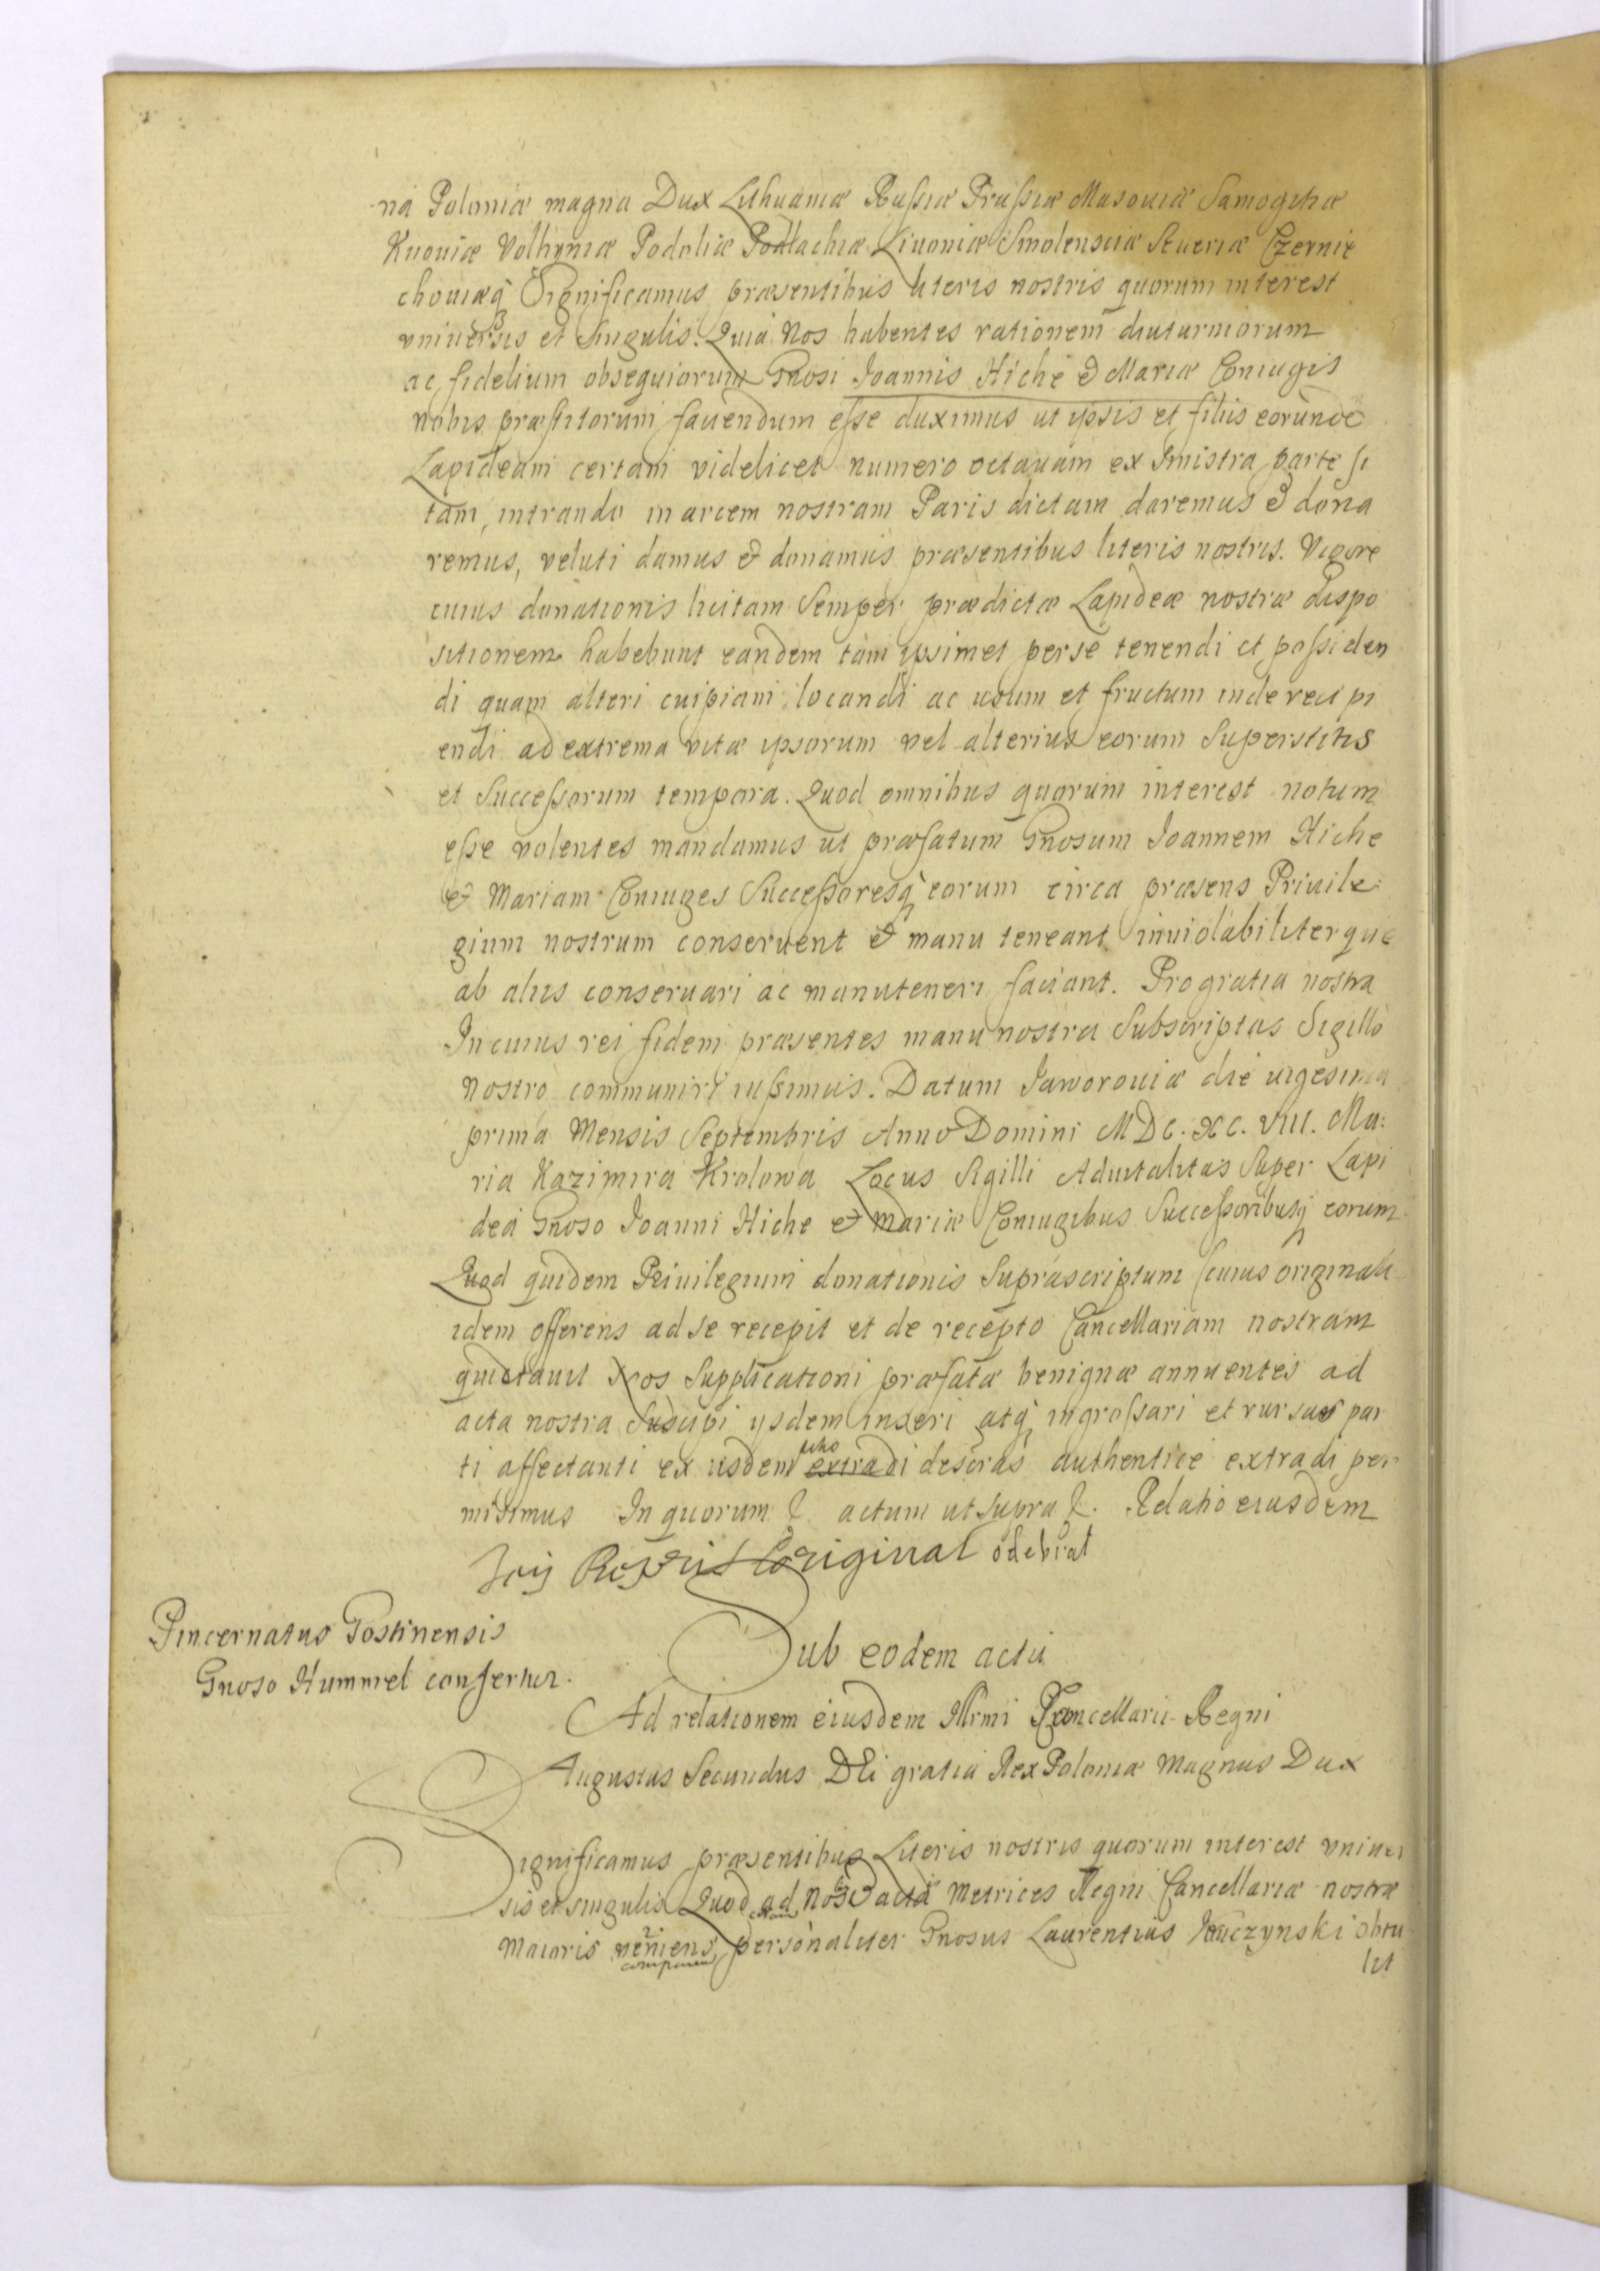 na Poloniæ magna Dux Lithuaniæ Russiæ Prussiæ Masouiæ Samogitiæ
Kuouiæ Volhyniæ Podoliæ Podlachiæ Liuoniæ Smolensciæ Seueriæ Czernie
chouiæq Significamus præsentibus literis nostris quorum interest
vniuersis et singulis. Quia Nos habentes rationem diuturniorum
ac fidelium obsequiorum Gnosi Joannis Hiche & Mariæ Coniugis
nobis præstitorum fauendum esse duximus ut ipsis et filiis eorunde
Lapideam certam videlicet numero octauam ex sinistra parte si
tam, intrando in arcem nostram Paris dictam daremus & dona
remus, veluti damus & donamus præsentibus literis nostris. Vigore
cuius donationis licitam semper prædictæ Lapideæ nostræ dispo
sitionem habebunt eandem tam ipsimet perse tenendi et possiden
di quam alteri cuipiam locandi ac usum et fructum inde recipi
endi ad extrema vitæ ipsorum vel alterius eorum superstitis
et Successorum tempora. Quod omnibus quorum interest notum
esse volentes mandamus ut præfatum Gnosum Joannem Hiche
& Mariam Coniuges Successoresq eorum circa præsens Priuile:
gium nostrum conseruent & manu teneant inuiolabiliterque
ab aliis conseruari ac manuteneri faciant. Pro gratia nostra
In cuius rei fidem præsentes manu nostra Subscriptas Sigillo
nostro communiri iussimus. Datum Jaworouiæ die uigesima
prima Mensis Septembris Anno Domini MDC. XC. VIII. Ma:
ria Kazimira Krolowa Locus Sigilli Aduitalitas Super Lapi
dea Gnoso Joanni Hiche & Mariæ Coniugibus Successoribusq eorum
Quod quidem Priuilegium donationis Suprascriptum (cuius originale
idem offerens ad se recepit et de recepto Cancellariam nostram
quietauit Nos Supplicationi præfatæ benignæ annuentes ad
acta nostra Suscipi ysdem inseri atq ingrossari et rursus par
ti affectanti ex iisdem extradi descras authentice extradi per
misimus In quorum actum ut supra. Relatio eiusdem
original odebrał
Pincernatus Gostinensis
Gnoso Hummel confertur.
Sub eodem actu
Ad relationem eiusdem Illrmi Cancellarii Regni
Augustus Secundus DEi gratia Rex Poloniæ Magnus Dux
Significamus præsentibus Literis nostris quorum interest vniuer
sis et singulis Quod ad Nos & acta Metrices Regni Cancellariæ nostræ
Maioris veniens personaliter Gnosus Laurentius obtu
lit